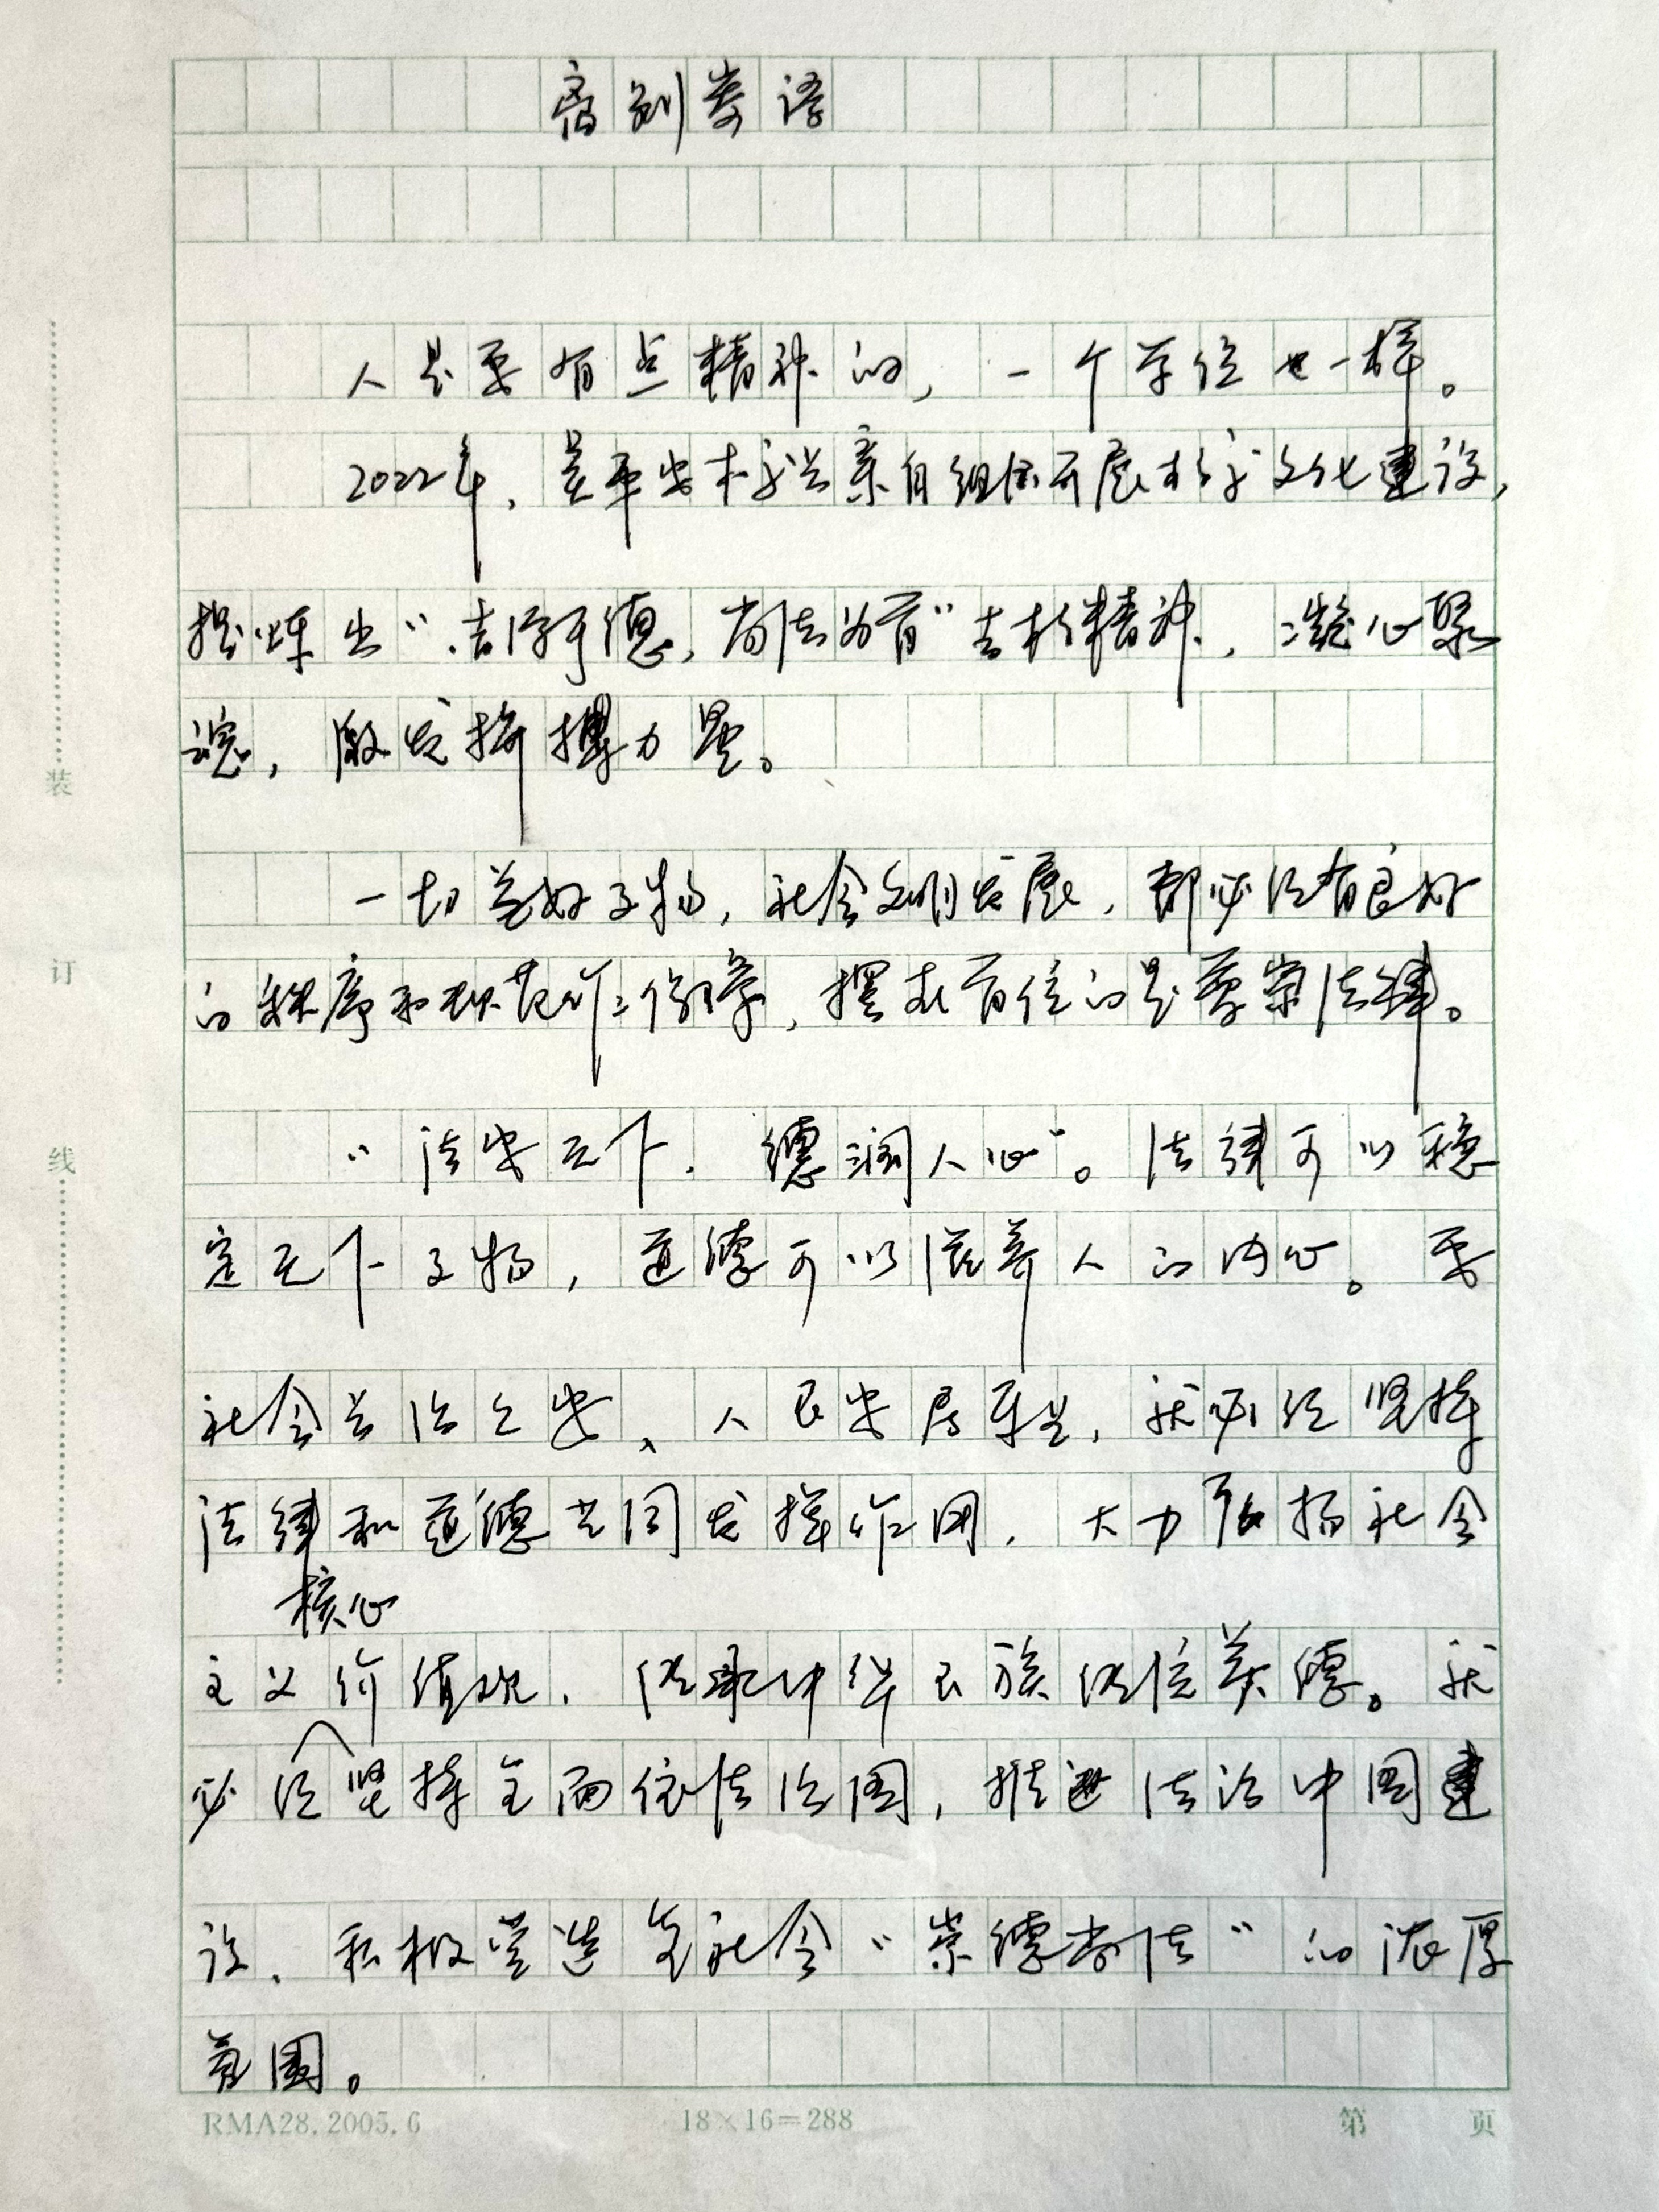 离别寄语
人是要有点精神的，一个单位也一样。
2022年，吴平安书记亲自组织开展校文化建设，
提炼出“言行于德，尚法为育”言校精神，凝心聚
魂，激发拼搏力量。
一切美好事物，社会文明发展，都必须有良好
的秩序和规范作保障，摆在首位的是尊崇法律。
“法安天下，德润人心”。法律可以稳
定天下事物，道德可以滋养人的内心。要
社会长治久安、人民安居乐业，就必须坚持
法律和道德共同发挥作用，大力弘扬社会
核心
主义价值观，传承中华民族传统美德。就
必须坚持全面依法治国，推进法治中国建
设，积极营造全社会“崇德尚法”的浓厚
氛围。
装
订
线
RMA28.2005.6
18×16=288
第 页